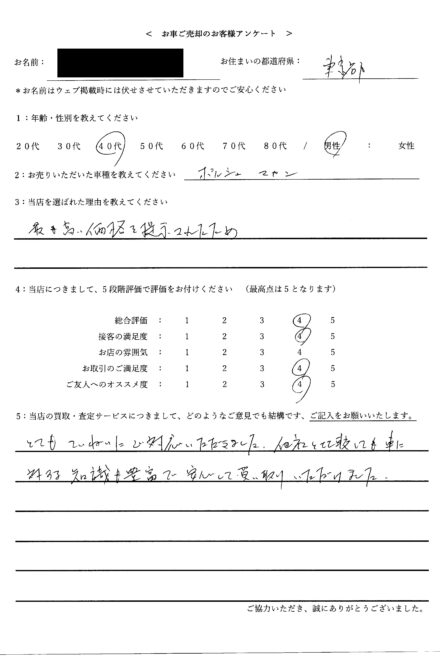 < お車ご売却のお客様アンケート >
お名前：
お住まいの都道府県： 東京都
＊お名前はウェブ掲載時には伏せさせていただきますのでご安心ください
1：年齢・性別を教えてください
20代 30代 40代 50代 60代 70代 80代 / 男性 : 女性
2：お売りいただいた車種を教えてください ポルシェ マカン
3：当店を選ばれた理由を教えてください
最も高い価格を提示されたため
4：当店につきまして、5段階評価で評価をお付けください （最高点は5となります）
総合評価 ： 1 2 3 4 5
接客の満足度 ： 1 2 3 4 5
お店の雰囲気 ： 1 2 3 4 5
お取引のご満足度 ： 1 2 3 4 5
ご友人へのオススメ度 ： 1 2 3 4 5
5：当店の買取・査定サービスにつきまして、どのようなご意見でも結構です、ご記入をお願いいたします。
とても ていねいにご対応いただきました。他社とと比較しても車に
対する知識も豊富で安心して買い取りいただけました。
ご協力いただき、誠にありがとうございました。